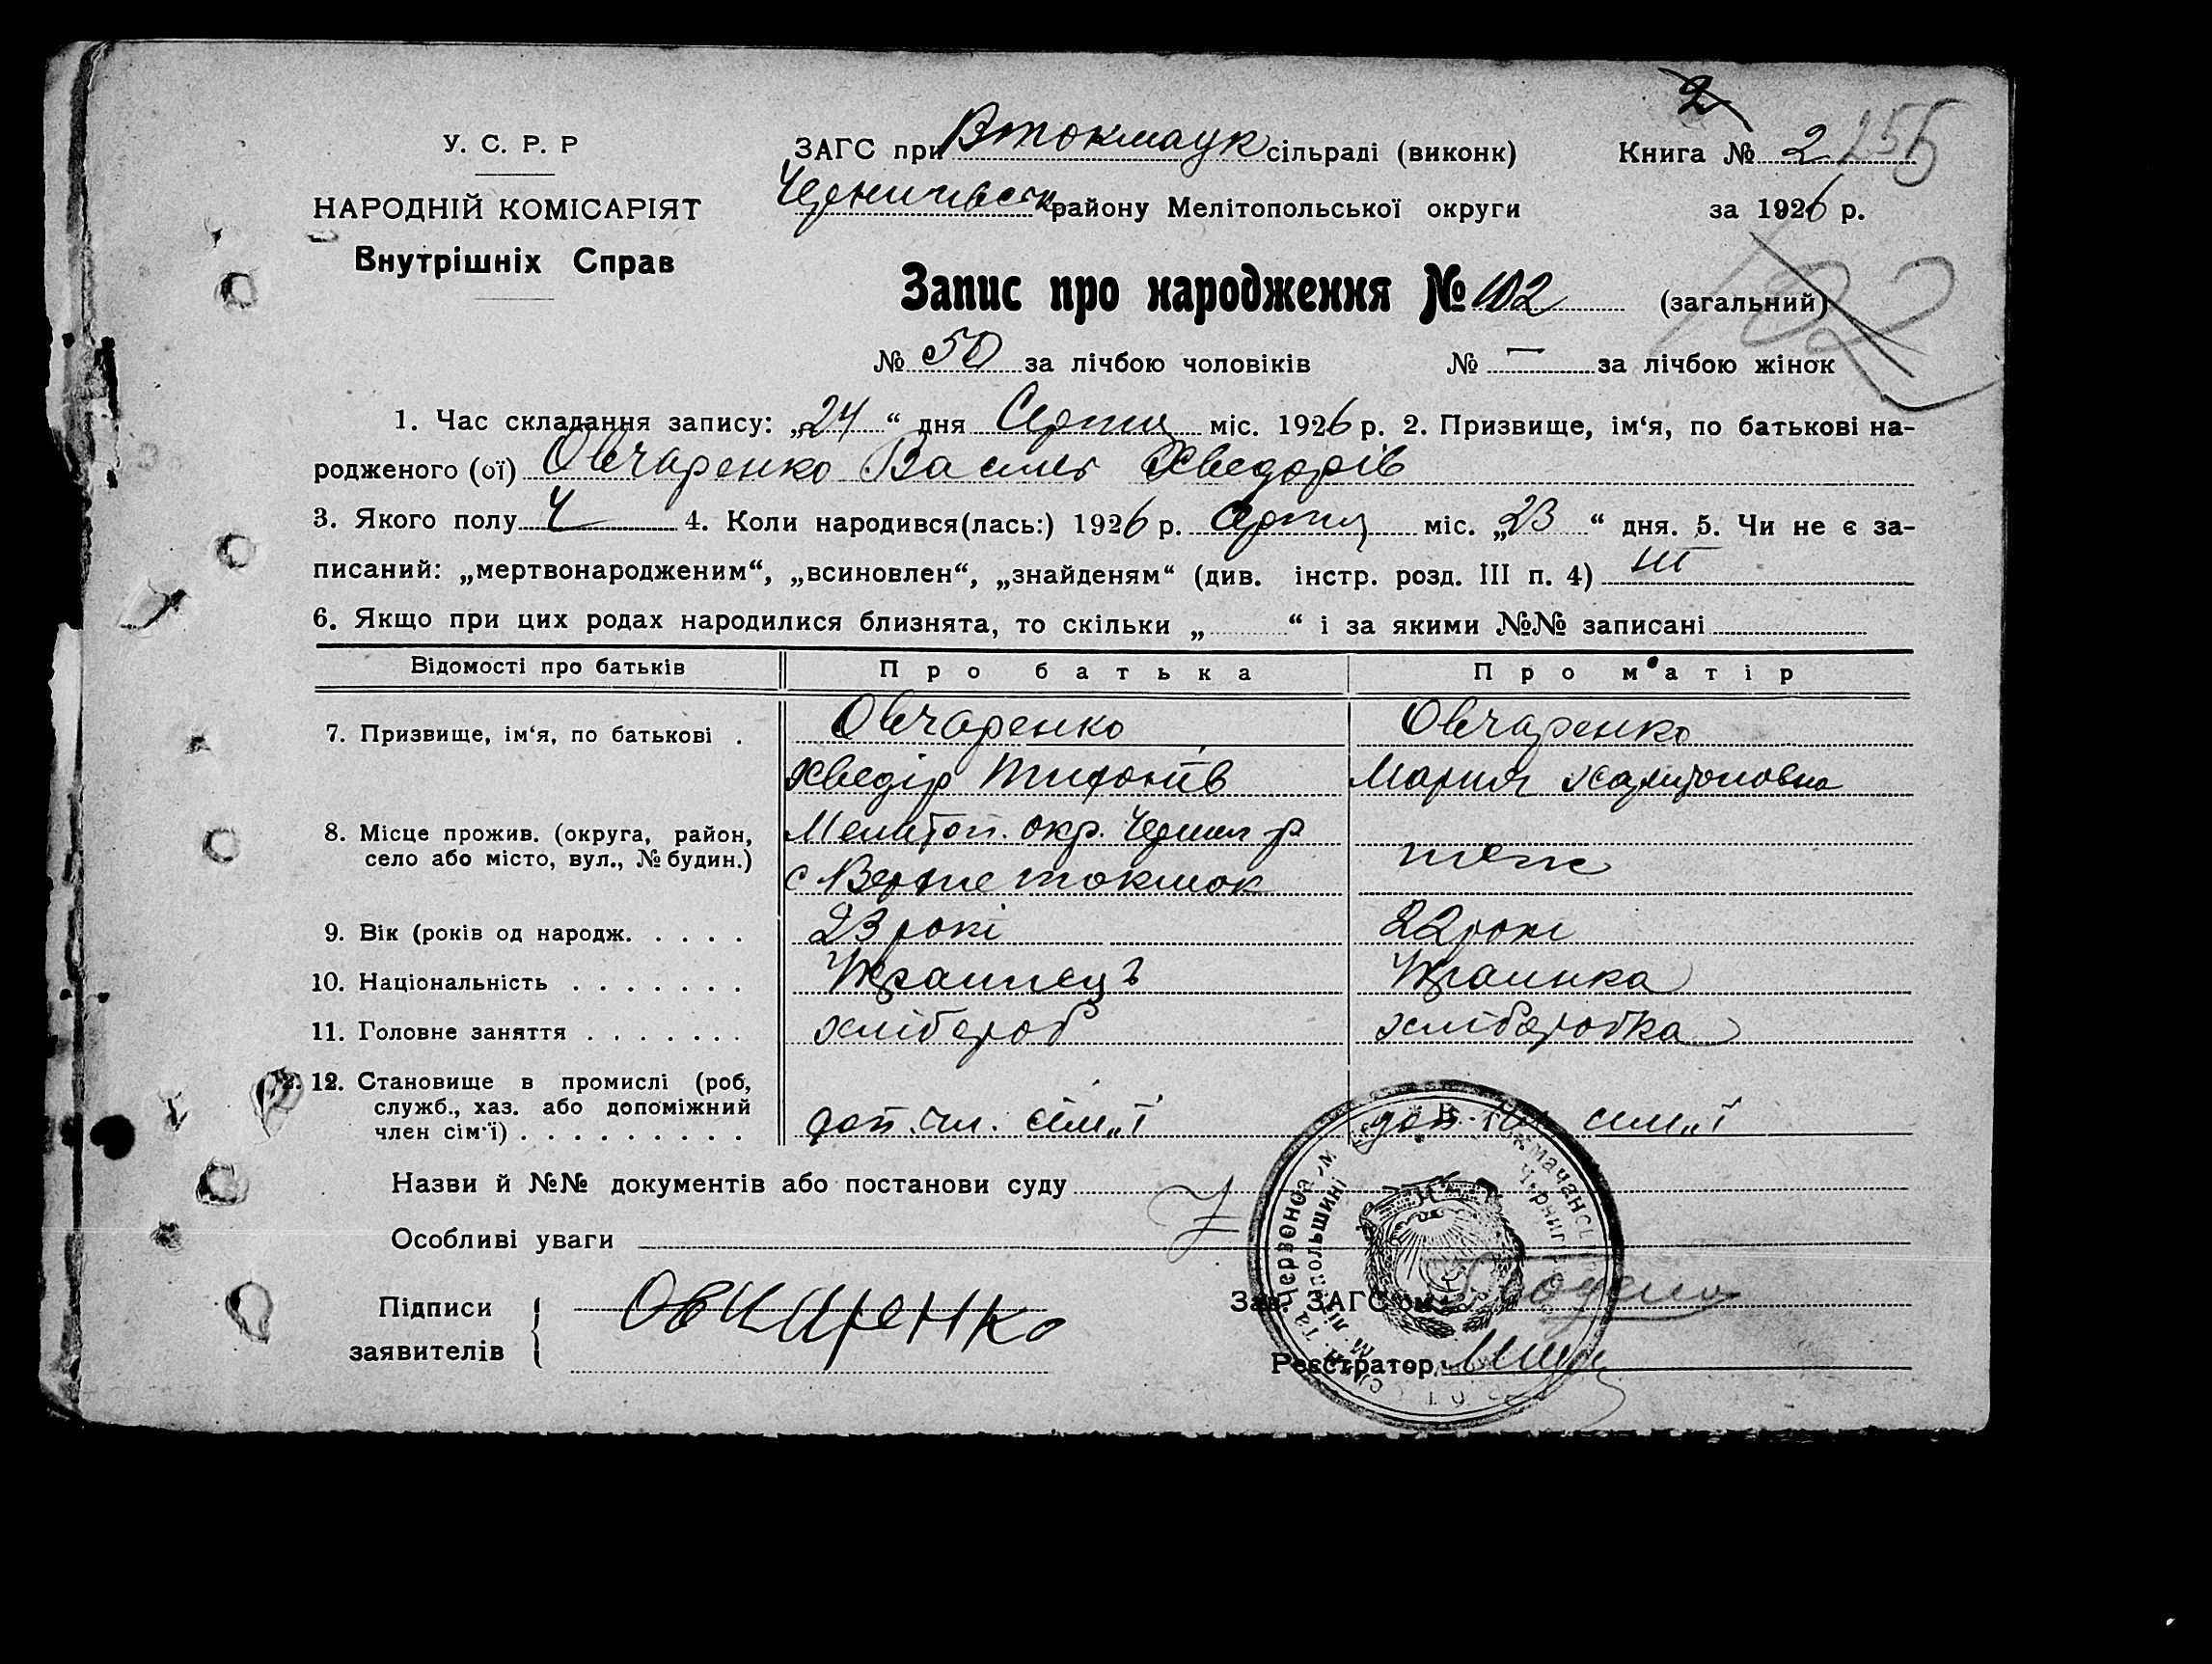 2
У. С. Р. Р
НАРОДНІЙ КОМІСАРІЯТ
Внутрішніх Справ
ЗАГС при Втокмачк сільраді (виконк)
Книга № 2 255
району Мелітопольської округи
за 1926 р.
Запис про народження № 102 (загальний)
102
№ 50 за лічбою чоловіків № — за лічбою жінок
1. Час складання запису: „24“ дня Серпня міс. 1926 р. 2. Призвище, ім‘я, по батькові на-
родженого (ої) Овчаренко Хведорів
3. Якого полу Ч 4. Коли народився(лась:) 1926 р. Серпня міс. „23“ дня. 5. Чи не є за-
писаний: „мертвонародженим“, „всиновлен“, „знайденям“ (див. інстр. розд. III п. 4) ні
6. Якщо при цих родах народилися близнята, то скільки „ “ і за якими №№ записані
Відомості про батьків Про батька Про м‘атір
7. Призвище, ім‘я, по батькові . Овчаренко Овчаренко
Хведір Тихонів Мария Харитоновна
8. Місце прожив. (округа, район, Мелитоп. окр. р
село або місто, вул., № будин.) теж
с Верхне токмок
9. Вік (років од народж. . . . . 23 рокі 22 рокі
10. Національність . . . . . . . Украинець Украинка
11. Головне заняття . . . . . . . хлібороб хліборобка
12. Становище в промислі (роб,
служб., хаз. або допоміжний
член сім‘ї) . . . . . . . . . . доп. чл. сім„ї доп чл сим„ї
Назви й №№ документів або постанови суду
Особливі уваги
Підписи
заявителів
Овчаренко
Зав. ЗАГС‘ом
Реєстратор